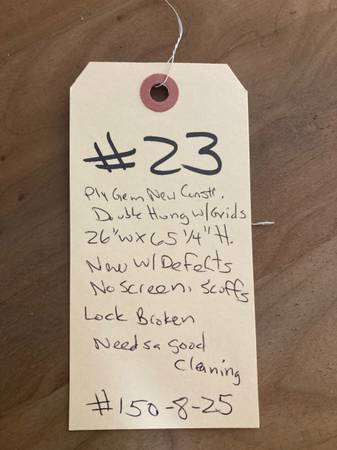 #23
Ply Gem New Constr.
Double Hung w/Grids
26"w x 65 1/4" H.
New w/Defects
No Screen, Scuffs
Lock Broken
Needs a Good
Cleaning
#150-8-25